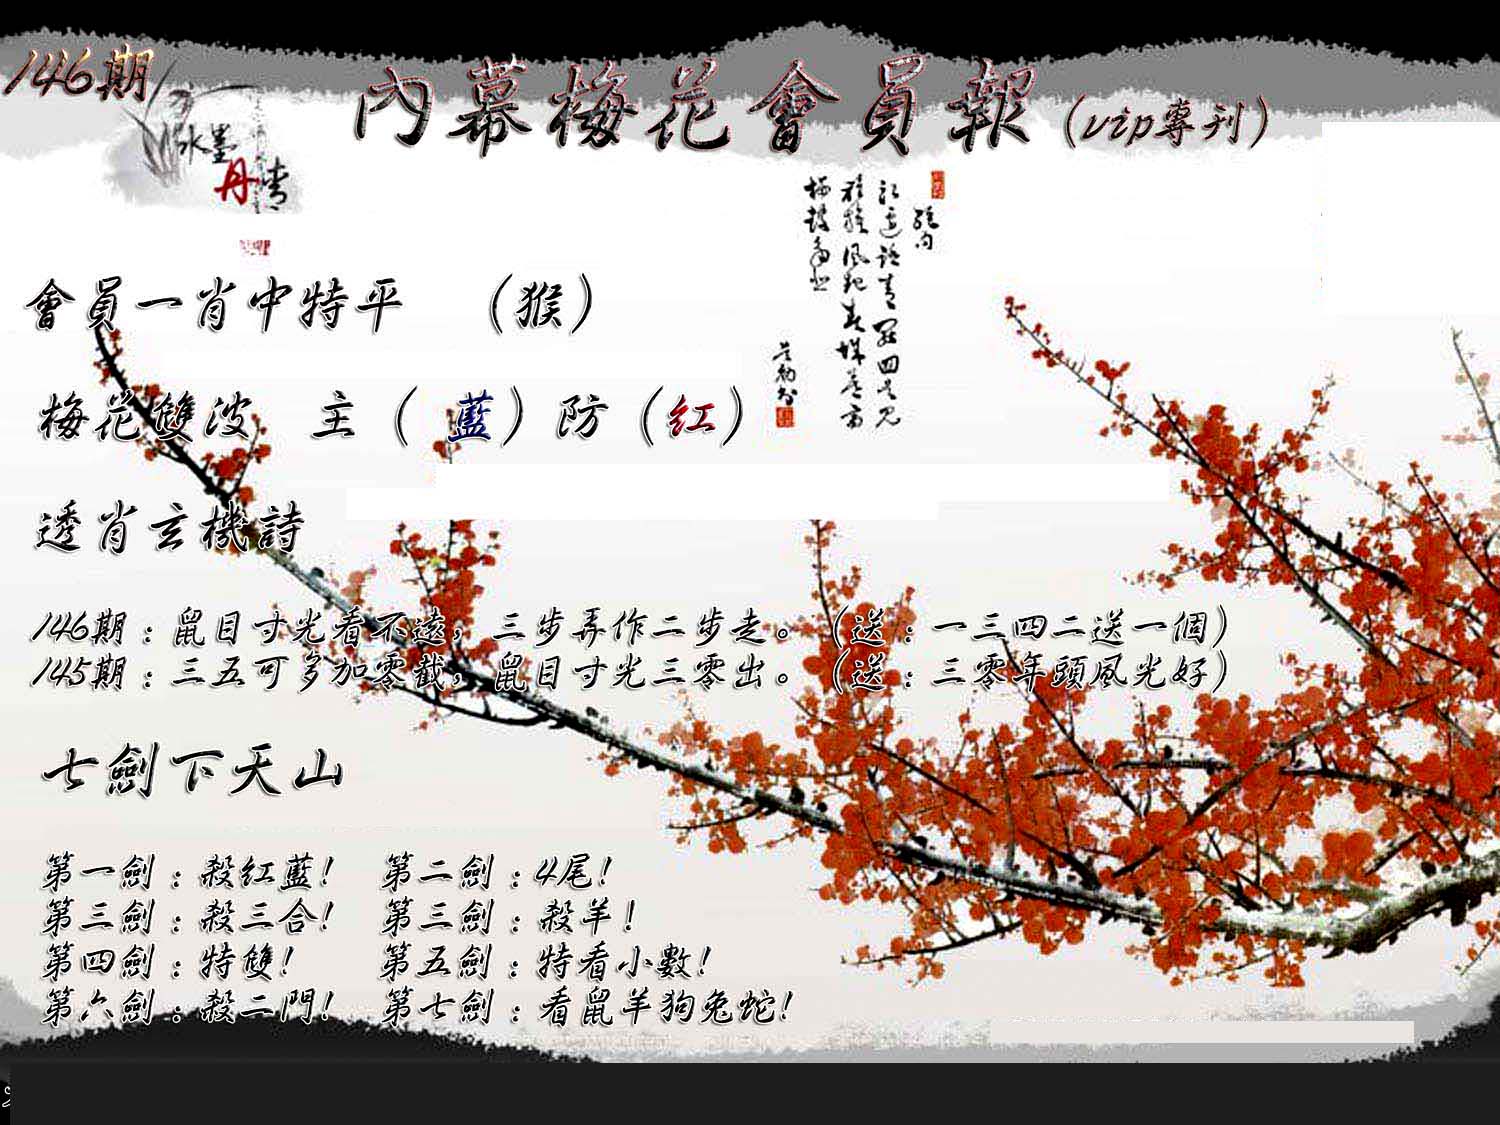 146期
內幕梅花會員報(vip專刊)
水墨
丹青
會員一肖中特平 (猴)
梅花雙波 主(藍)防(紅)
透肖玄機詩
146期:鼠目寸光看不遠,三步弄作二步走。(送:一三四二送一個)
145期:三五可多加零截,鼠目寸光三零出。(送:三零年頭風光好)
七劍下天山
第一劍:殺紅藍! 第二劍:4尾!
第三劍:殺三合! 第三劍:殺羊!
第四劍:特雙! 第五劍:特看小數!
第六劍:殺二門! 第七劍:看鼠羊狗兔蛇!